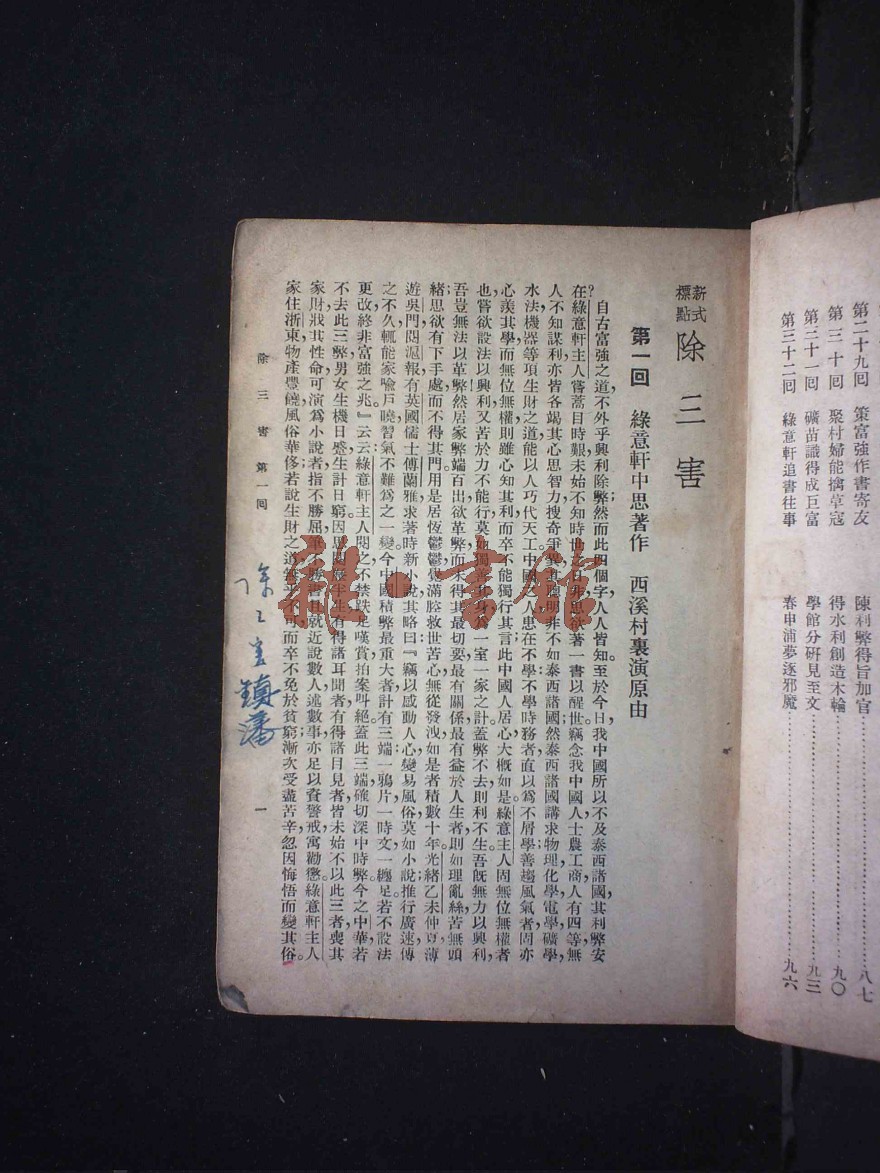 第二十九回 策富強作書寄友 陳利弊得旨加官……八七
第三十回 聚村婦能擒草寇 得水利創造木輪……九〇
第三十一回 礦苗識得成巨富 學館分硏見至文……九三
第三十二回 綠意軒追書往事 春申浦夢逐邪魔……九六
新式標點 除三害
第一回 綠意軒中思著作 西溪村裏演原由
自古富強之道,不外乎興利除弊,然而此四個字,人人皆知。至於今日,我中國所以不及泰西諸國,其利弊安
在?綠意軒主人嘗蒿目時艱,未始不知時世之日非,思欲著一書以醒世。竊念我中國人士農工商,人有四等,無
人不知謀利,亦皆各竭其心思智力,搜奇爭異,其聰明非不如泰西諸國。然泰西諸國講求物理化學電學礦學,
水法機器等項生財之道,能以人巧代天工。中國之人,患在不學,不學時務者,直以爲不屑學,善趨風氣者,固亦
心羨其學,而無位無權,則雖心知其利,而卒不能獨行其言。此中國人居心大概如是。綠意主人固無位無權者
也,嘗欲設法以興利,又苦於力不能行,莫如獨善其身,爲一室一家之計。蓋弊不去則利不生。吾旣無力以興利,
吾豈無法以革弊!然居家弊端百出,欲革弊而求得其最切要最有關係最有益於人生者,則如理亂絲,苦無頭
緒,思欲有下手處而不得其門。用是居恆鬱鬱,覺滿腔救世苦心,無從發洩,如是者積數十年。光緒乙未仲夏,薄
遊吳門,閱滬報,有英國儒士傅蘭雅求著時新小說,其略曰:『竊以感動人心,變易風俗,莫如小說,推行廣速,傳
之不久,輒能家喻戶曉,習氣不難爲之一變。今中國積弊最重大者,計有三端:一鴉片,一時文,一纏足。若不設法
更改,終非富強之兆。』云云。綠意軒主人閱之,不禁跌足嘆賞,拍案叫絕。蓋此三端,確切深中時弊。今之中華若
不去此三弊,男女生機日蹙,生計日窮。因思閱歷半生,有得諸耳聞者,有得諸目見者,皆未始不以此三者,喪其
家財,戕其性命,可演爲小說者,指不勝屈,筆不勝書。且就近說數人,述數事,亦足以資警戒,寓勸懲。綠意軒主人
家住浙東,物產豐饒,風俗華侈,若說生財之道,無乎不可,而卒不免於貧窮,漸次受盡苦辛,忽因悔悟而變其俗。
除三害 第一回
一
除三害鎮藩